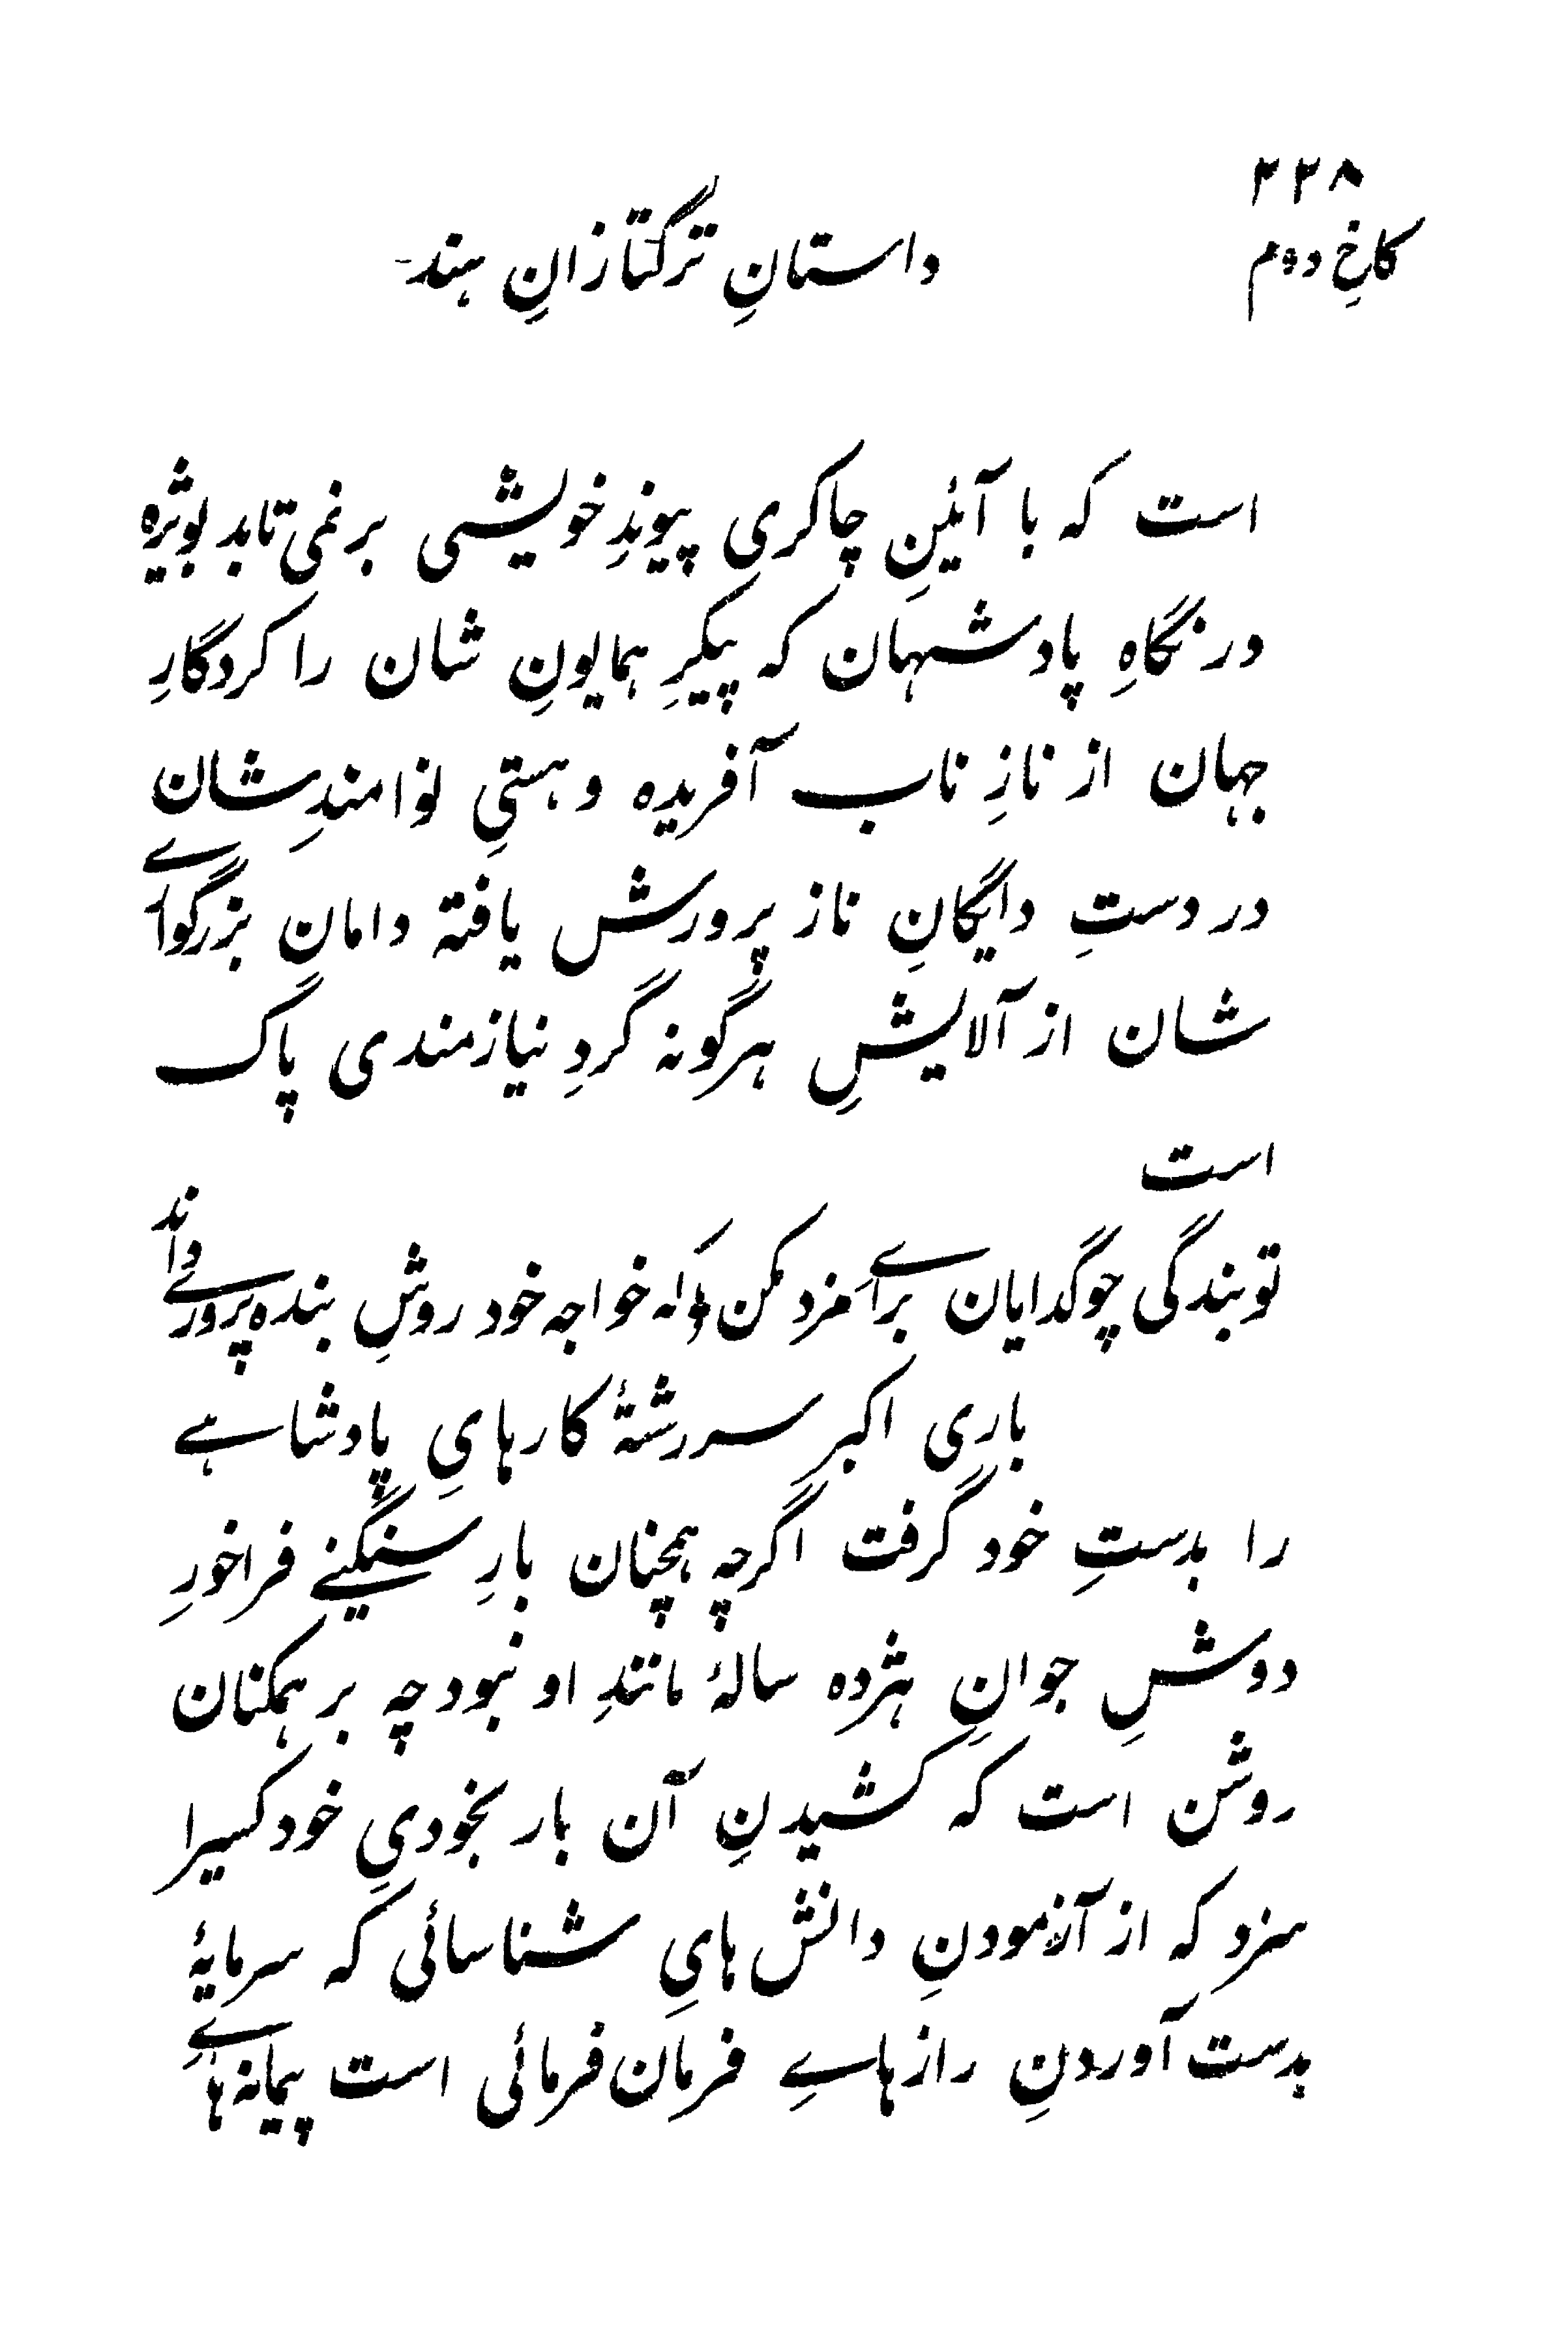 ۲۲۸
کاخِ دوم
داستانِ ترکتازانِ هند
است که با آئینِ چاکری پیوندِ خویشی برنمی تابد بویژه
در نگاهِ پادشهان که پیکرِ همایونِ شان را کردگارِ
جهان از نازِ ناب آفریده و هستیِ نوامندِ شان
در دستِ دایگانِ ناز پرورش یافتہ دامانِ بزرگوارے
شان از آلایشِ هرگونه گردِ نیازمندی پاک
است
تو بندگی چو گدایان براے مزد مکن که خواجه خود روشِ بنده پرورے داند
باری اکبر سررشتهٔ کارهایِ پادشاهے
را بدستِ خود گرفت اگرچه همچنان بارِ سنگینے فراخورِ
دوشِ جوانِ هژده سالهٔ مانندِ او نبود چه بر همکنان
روشن است که کشیدنِ آن بار بخودیِ خود کسیرا
سزد که از آزمودنِ دانش هایِ شناسائی که سرمایهٔ
بدست آوردنِ رازهاےِ فرمان فرمائی است پیمانه هاےِ